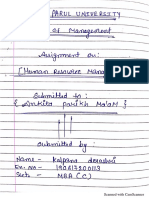 PARUL UNIVERSITY
of Management
Assignment on:
[Human Resource Mana
Submitted to:
{ Ankita parikh Ma'am }
submitted by
Name - Kalpana devashri
Sect - MBA (C)
Scanned with CamScanner